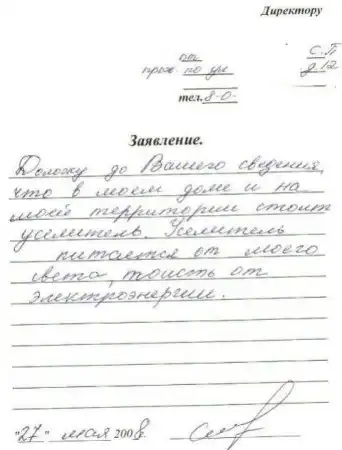 Директору
от С.П
прож. по ул д 12
тел. 8-0-
Заявление.
Доложу до Вашего сведения,
что в моем доме и на
моей территории стоит
уселитель. Уселитель
питается от моего
света, тоисть от
электроэнергии.
"27" мая 2008.